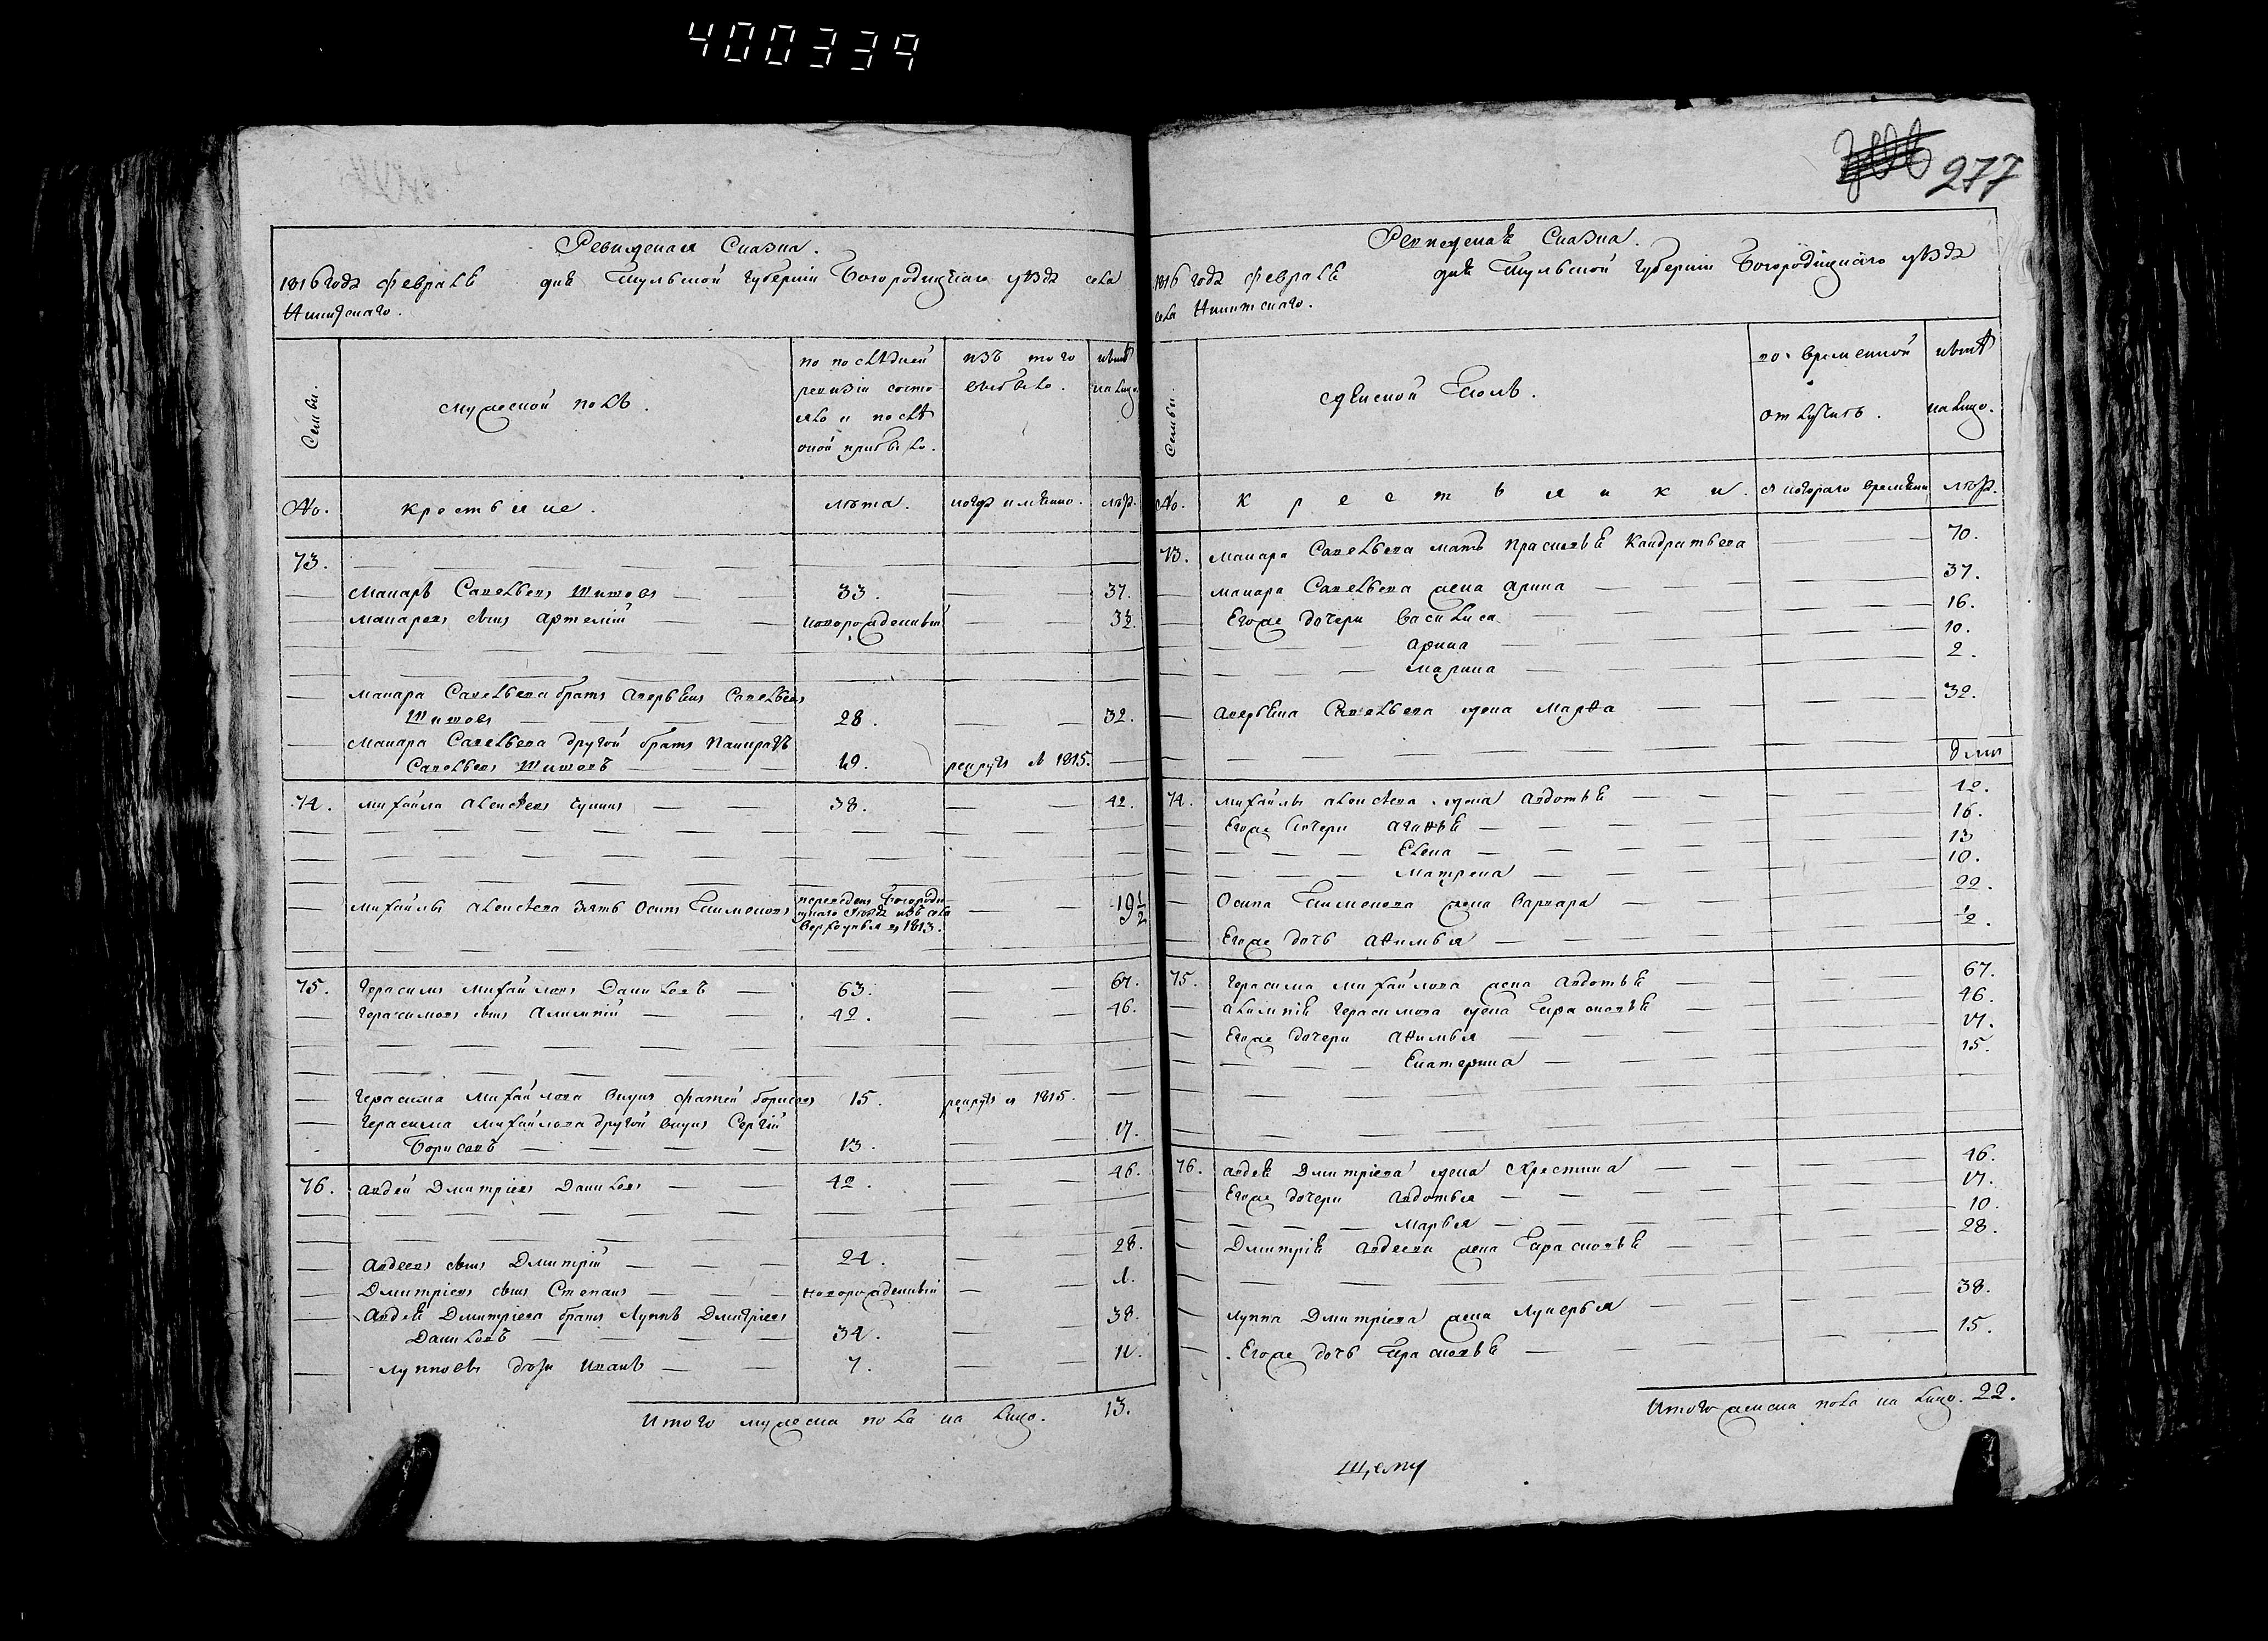 400339
277
Ревижская Сказка.
1816 года февраля дня Тульской губернии Богородицкаго уѣзда села
Никитскаго.
Семьи.
мужеской полъ.
по послѣдней
ревизіи состо
яло и послѣ
оной прибыло.
изъ того
выбыло.
нынѣ
на лицо.
No.
крестьяне.
лѣта.
когда имянно.
лѣта.
73.
Макаръ Савельевъ Титовъ 33. 37.
Макаровъ сынъ Артемій новорожденный 3½.
Макара Савельева братъ Аверьянъ Савельевъ
Титовъ 28. 32.
Макара Савельева другой братъ Панкратъ
Савельевъ Титовъ 19. рекрутъ в 1815.
74. Михайла Алексѣевъ 38. 42.
Михайлы Алексѣева зять Осипъ переведенъ Богороди
цкаго уѣзда изъ села 19½
в 1813.
75. Герасимъ Михайловъ Даниловъ 63. 67.
Герасимовъ сынъ Алимпій 42. 46.
Герасима Михайлова внукъ Фатей Борисовъ 15. рекрутъ в 1815.
Герасима Михайлова другой внукъ Сергій
Борисовъ 13. 17.
76. Авдей Дмитріевъ Даниловъ 42. 46.
Авдеевъ сынъ Дмитрій 24. 28.
Дмитріевъ сынъ Степанъ новорожденный 1.
Авдея Дмитріева братъ Луппъ Дмитріевъ
Даниловъ 34. 38.
Лупповъ Иванъ 7. 11.
Итого мужеска пола на лицо. 13.
Ревижская Сказка.
1816 года февраля дня Тульской губерніи Богородицкаго уѣзда
села Никитскаго.
Семьи.
женской полъ.
во временной
отлучкѣ.
нынѣ
на лицо.
No.
крестьянки.
с котораго времяни
лѣта.
73. Макара Савельева мать Прасковья Кандратьева 70.
Макара Савельева жена Арина 37.
Егоже дочери Василиса 16.
Арина 10.
Марина 2.
Аверьяна Савельева жена Марфа 32.
74. Михайлы Алексѣева жена Авдотья 42.
Егоже дочери Агафья 16.
Елена 13
Матрена 10.
Осипа жена Варвара 22.
Егоже дочь Афимья ½.
75. Герасима Михайлова жена Авдотья 67.
Алимпія Герасимова жена Прасковья 46.
Егоже дочери Афимья 17.
Екатерина 15.
76. Авдея Дмитріева жена Хрестина 46.
Егоже дочери Авдотья 17.
Марья 10.
Дмитрія Авдеева жена Прасковья 28.
Луппа Дмитріева жена Лукерья 38.
Егоже дочь Прасковья 15.
Итого женска пола на лицо. 22.